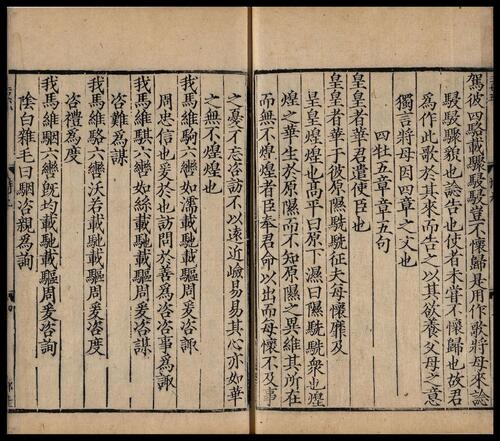 駕彼四駱載驟駸駸豈不懷歸是用作歌將母來諗
駸駸驟貌也諗告也使者未嘗不懷歸也故君
為作此歌於其來而告之以其欲養父母之意
獨言將母因四章之文也
四牡五章章五句
皇皇者華君遣使臣也
皇皇者華于彼原隰駪駪征夫每懷靡及
皇皇煌煌也髙平曰原下濕曰隰駪駪衆也煌
煌之華生於原隰而不知原隰之異維其所在
而無不煌煌者臣奉君命以出而每懷不及事
之憂不忘咨訪不以遠近嶮易易其心亦如華
之無不煌煌也
我馬維駒六轡如濡載馳載驅周爰咨諏
周忠信也爰於也訪問於善為咨咨事為諏
我馬維騏六轡如絲載馳載驅周爰咨謀
咨難為謀
我馬維駱六轡沃若載馳載驅周爰咨度
咨禮為度
我馬維駰六轡旣均載馳載驅周爰咨詢
陰白雜毛曰駰咨親為詢